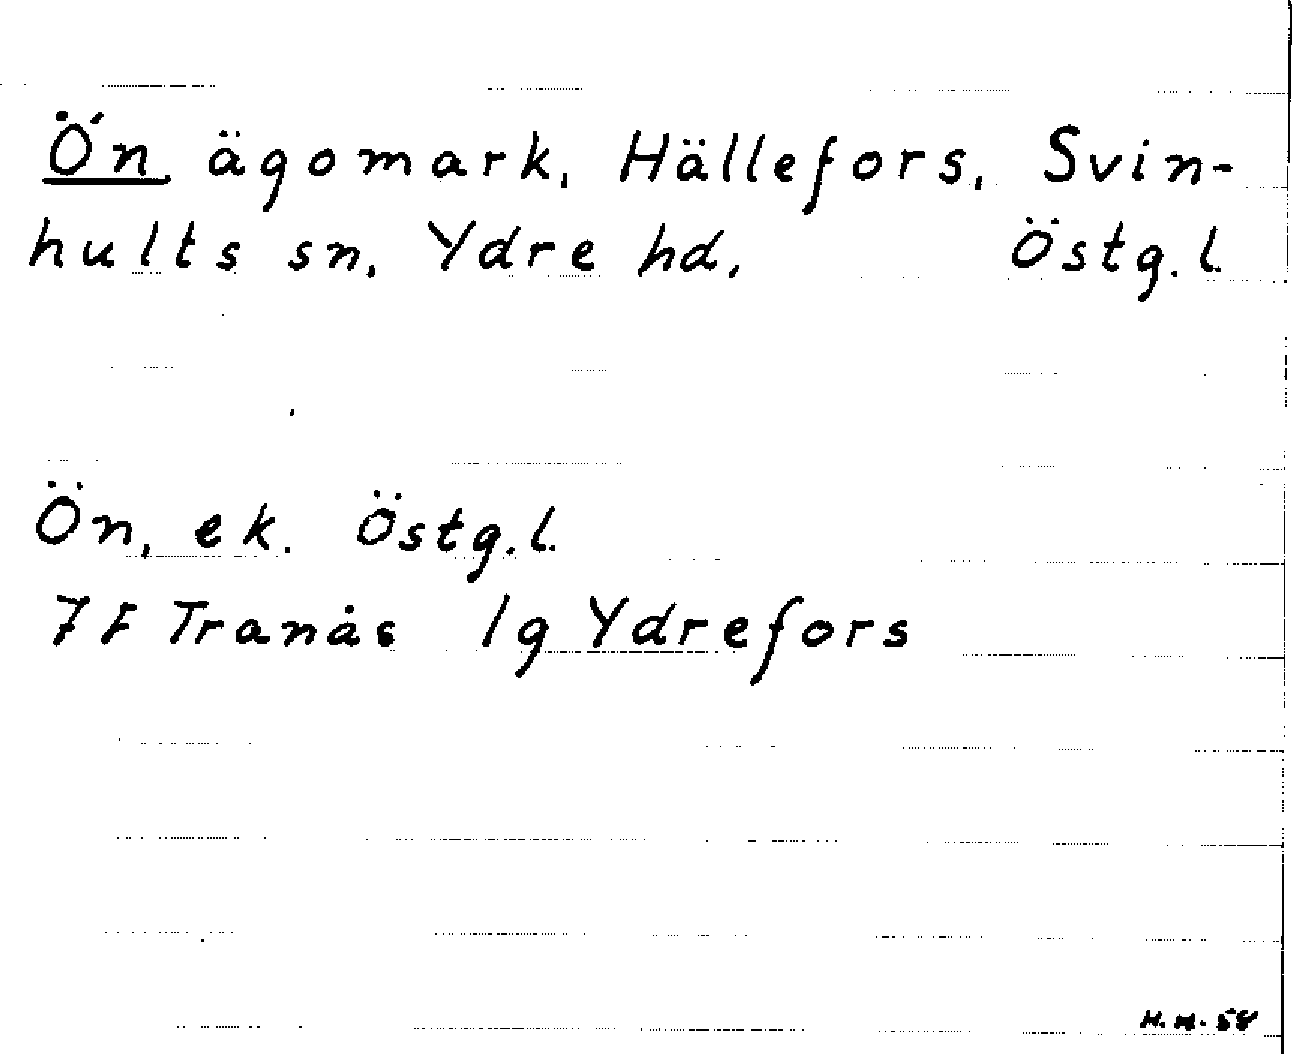 Ön, ägomark, Hällefors, Svin-
hults sn, Ydre hd, Östg.l.
Ön, ek. Östg.l.
7F Tranås 1g Ydrefors
H.M. 58